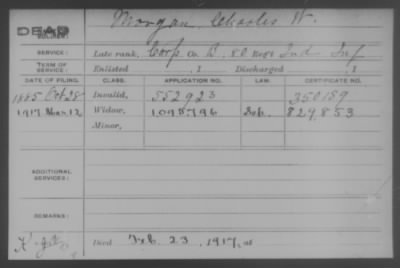 Morgan, Charles W.
DEAD
SOLDIER:
SERVICE: Late rank, Corp. Co. D, 80 Reg't Ind. Inf
TERM OF SERVICE: Enlisted , 1 Discharged , 1
DATE OF FILING. CLASS. APPLICATION NO. LAW. CERTIFICATE NO.
1885 Oct 28 Invalid, 552923 350189
1917 Mar. 12 Widow, 1,095,796 829,853
Minor,
ADDITIONAL SERVICES:
REMARKS:
Died Feb. 23, 1917, at